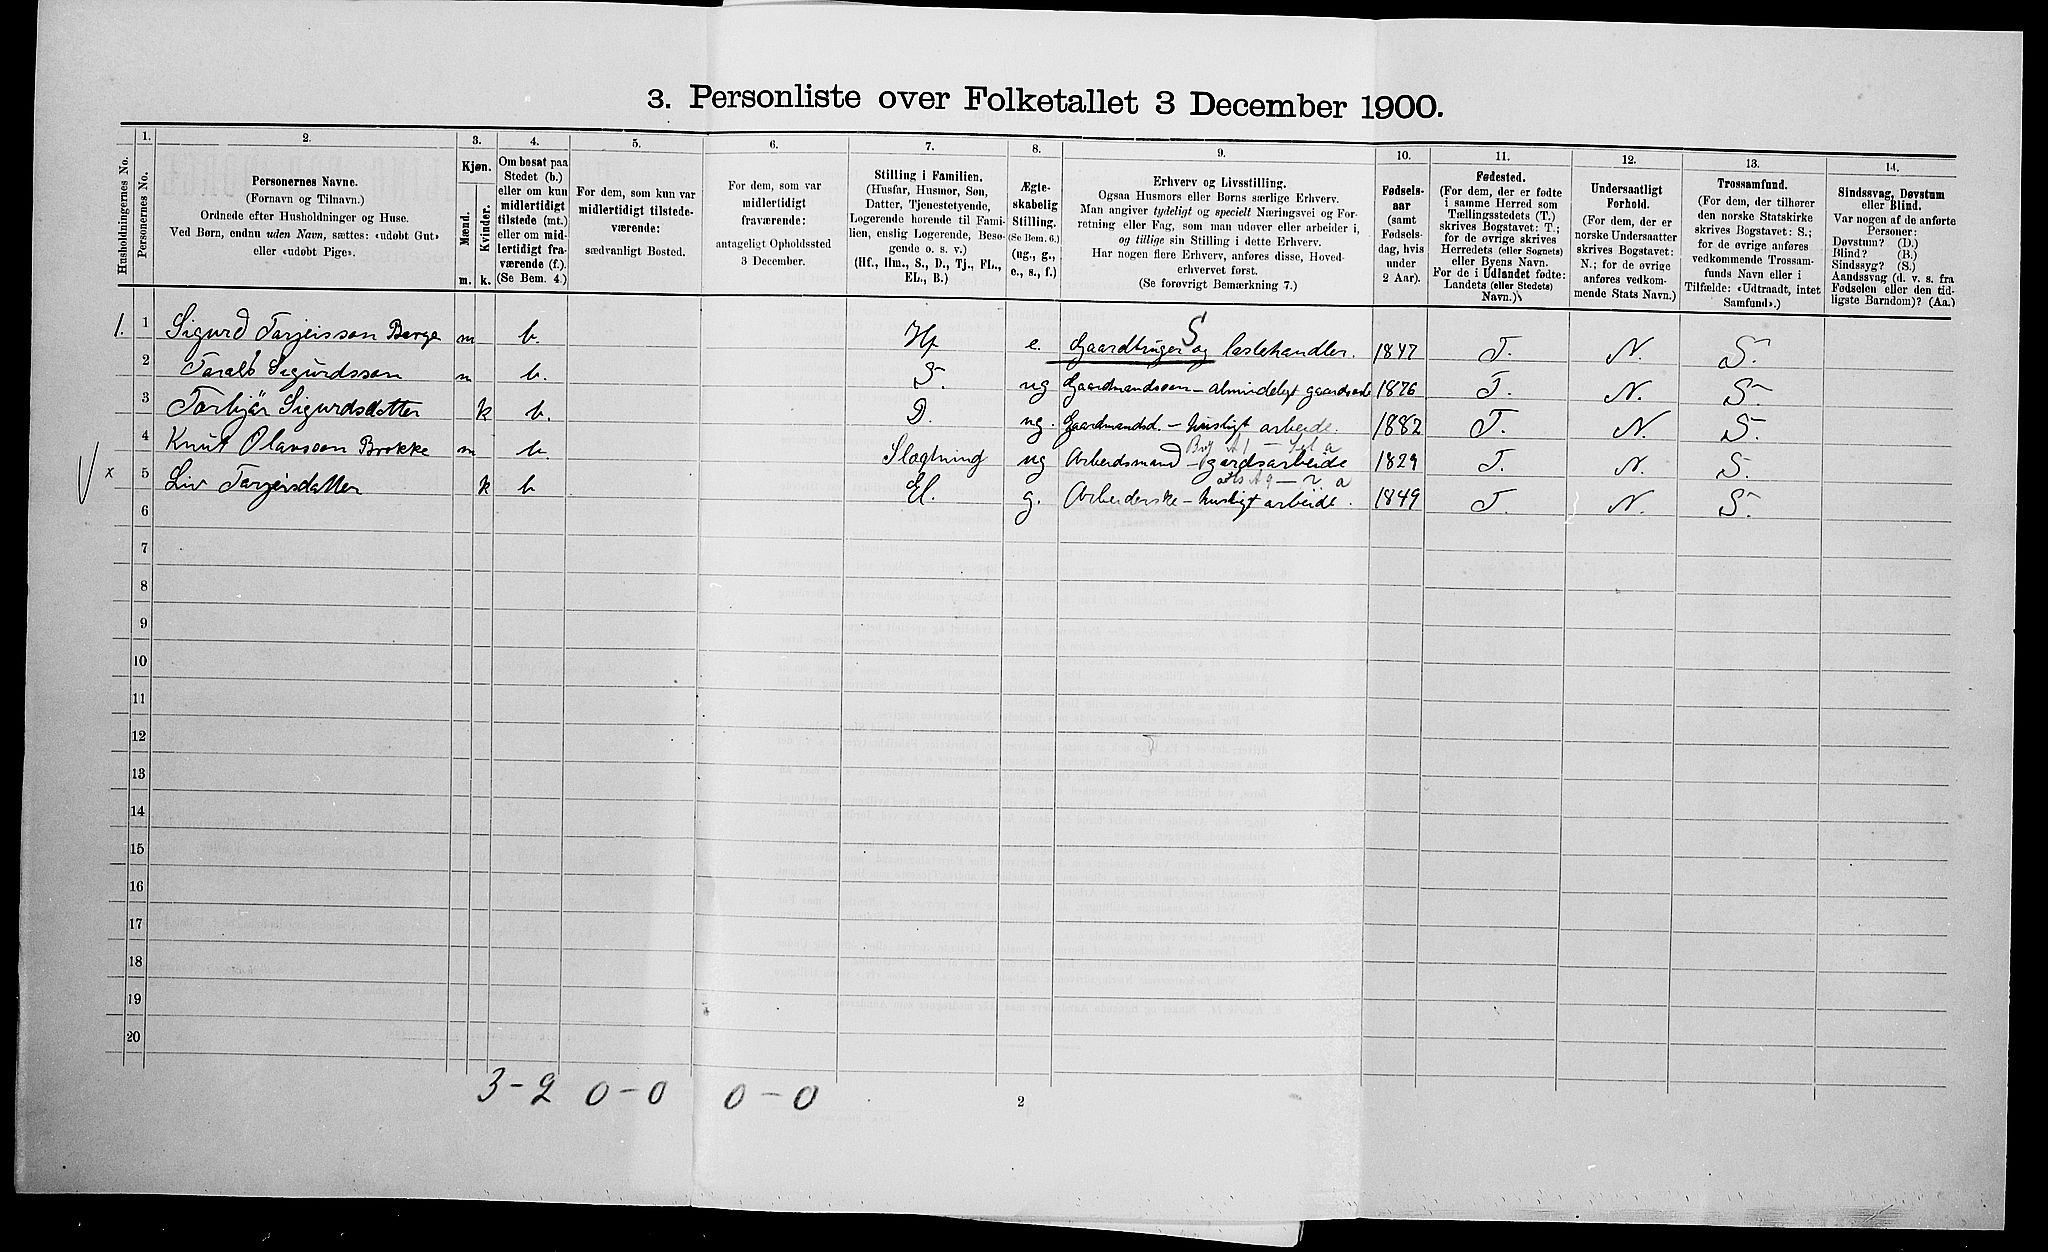 3. Personliste over Folketallet 3 December 1900.
1. 2. 3. 4. 5. 6. 7. 8. 9. 10. 11. 12. 13. 14.
Husholdningernes No.
Personernes No.
Personernes Navne.
(Fornavn og Tilnavn.)
Ordnede efter Husholdninger og Huse.
Ved Børn, endnu uden Navn, sættes: «udøbt Gut»
eller «udøbt Pige».
Kjøn.
Mænd.
Kvinder.
m. k.
Om bosat paa
Stedet (b.)
eller om kun
midlertidigt
tilstede (mt.)
eller om mid-
lertidigt fra-
værende (f.).
(Se Bem. 4.)
For dem, som kun var
midlertidigt tilstede-
værende:
sædvanligt Bosted.
For dem, som var
midlertidigt
fraværende:
antageligt Opholdssted
3 December.
Stilling i Familien.
(Husfar, Husmor, Søn,
Datter, Tjenestetyende,
Logerende hørende til Fami-
lien, enslig Logerende, Besø-
gende o. s. v.)
(Hf., Hm., S., D., Tj., FL.,
EL., B.)
Ægte-
skabelig
Stilling.
(Se Bem. 6.)
(ug., g.,
e., s., f.)
Erhverv og Livsstilling.
Ogsaa Husmors eller Børns særlige Erhverv.
Man angiver tydeligt og specielt Næringsvei og For-
retning eller Fag, som man udøver eller arbeider i,
og tillige sin Stilling i dette Erhverv.
Har nogen flere Erhverv, anføres disse, Hoved-
erhvervet først.
(Se forøvrigt Bemærkning 7.)
Fødsels-
aar
(samt
Fødsels-
dag, hvis
under
2 Aar).
Fødested.
(For dem, der er fødte
i samme Herred som
Tællingsstedets (T.)
skrives Bogstavet: T.;
for de øvrige skrives
Herredets (eller Sognets)
eller Byens Navn.
For de i Udlandet fødte:
Landets (eller Stedets)
Navn.)
Undersaatligt
Forhold.
(For dem, der er
norske Undersaatter
skrives Bogstavet:
N.; for de øvrige
anføres vedkom-
mende Stats Navn.)
Trossamfund.
(For dem, der tilhører
den norske Statskirke
skrives Bogstavet: S.;
for de øvrige anføres
vedkommende Trossam-
funds Navn eller i
Tilfælde: «Udtraadt, intet
Samfund».)
Sindssvag, Døvstum
eller Blind.
Var nogen af de anførte
Personer:
Døvstum? (D.)
Blind? (B.)
Sindssyg? (S.)
Aandssvag (d. v. s. fra
Fødselen eller den tid-
ligste Barndom)? (Aa.)
S
1. 1 Sigurd Tarjeisson Berge m b. Hf e. Gaardbruger og læstehandler. 1847 T. N. S.
2 Tarald Sigurdsson m b. S. ug Gaardmandssøn – almindeligt gaardsarb 1876 T. N. S.
3 Torbjør Sigurdsdatter k b. D. ug. Gaardmandsd. – husligt arbeide. 1882 T. N. S.
4 Knut Olavsson Brokke m b Slægtning ug Arbeidsmand – gardsarbeide 1829 T. N. S.
x 5 Liv Tarjeisdatter k b El. g. Arbeiderske – husligt arbeide. 1849 T. N. S.
6
7
8
9
10
11
12
13
14
15
16
17
18
19
20
3 – 2 0 – 0 0 – 0
2